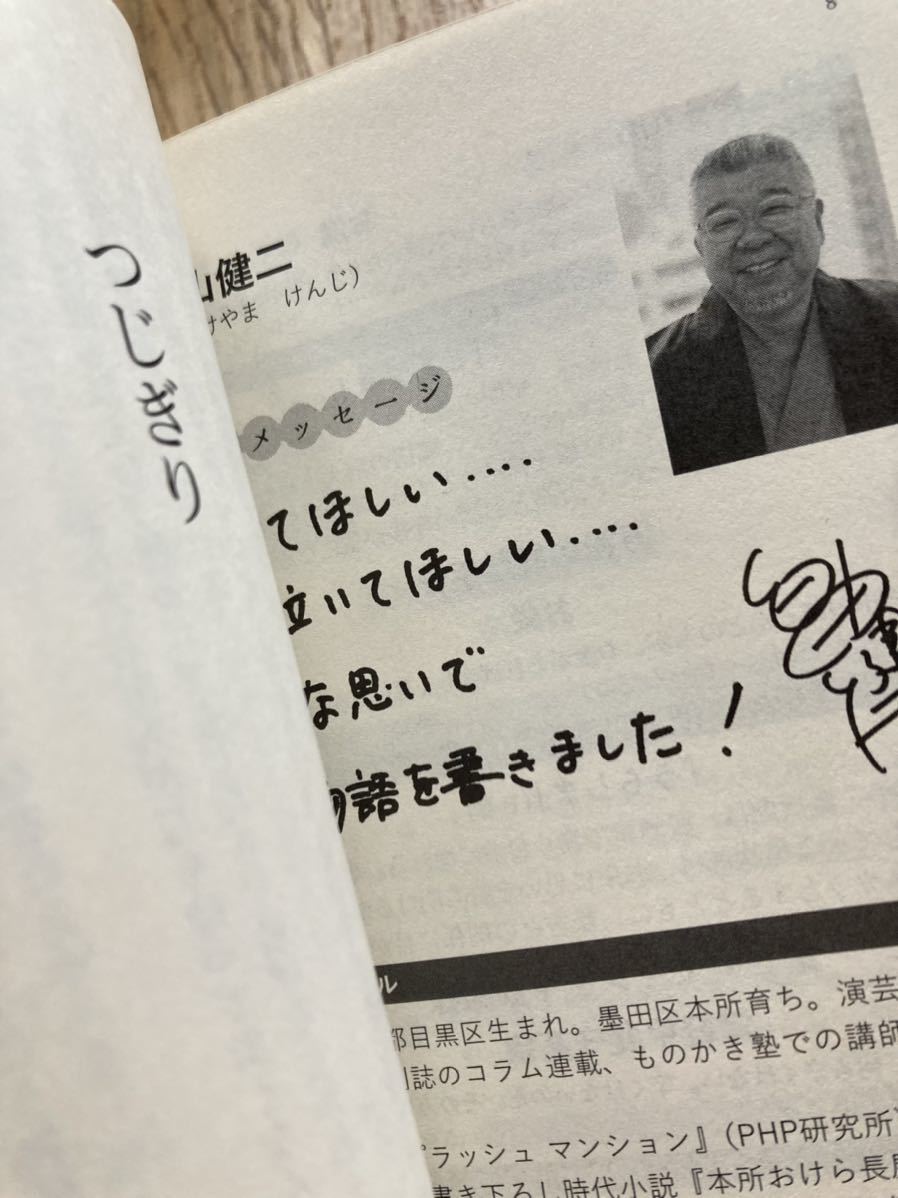 つじぎり
8
山健二
けやま けんじ）
メッセージ
てほしい‥‥
泣いてほしい‥‥
な思いで
物語を書きました！
ル
都目黒区生まれ。墨田区本所育ち。演芸
刊誌のコラム連載、ものかき塾での講師
プラッシュ マンション』（PHP研究所）
書き下ろし時代小説『本所おけら長屋